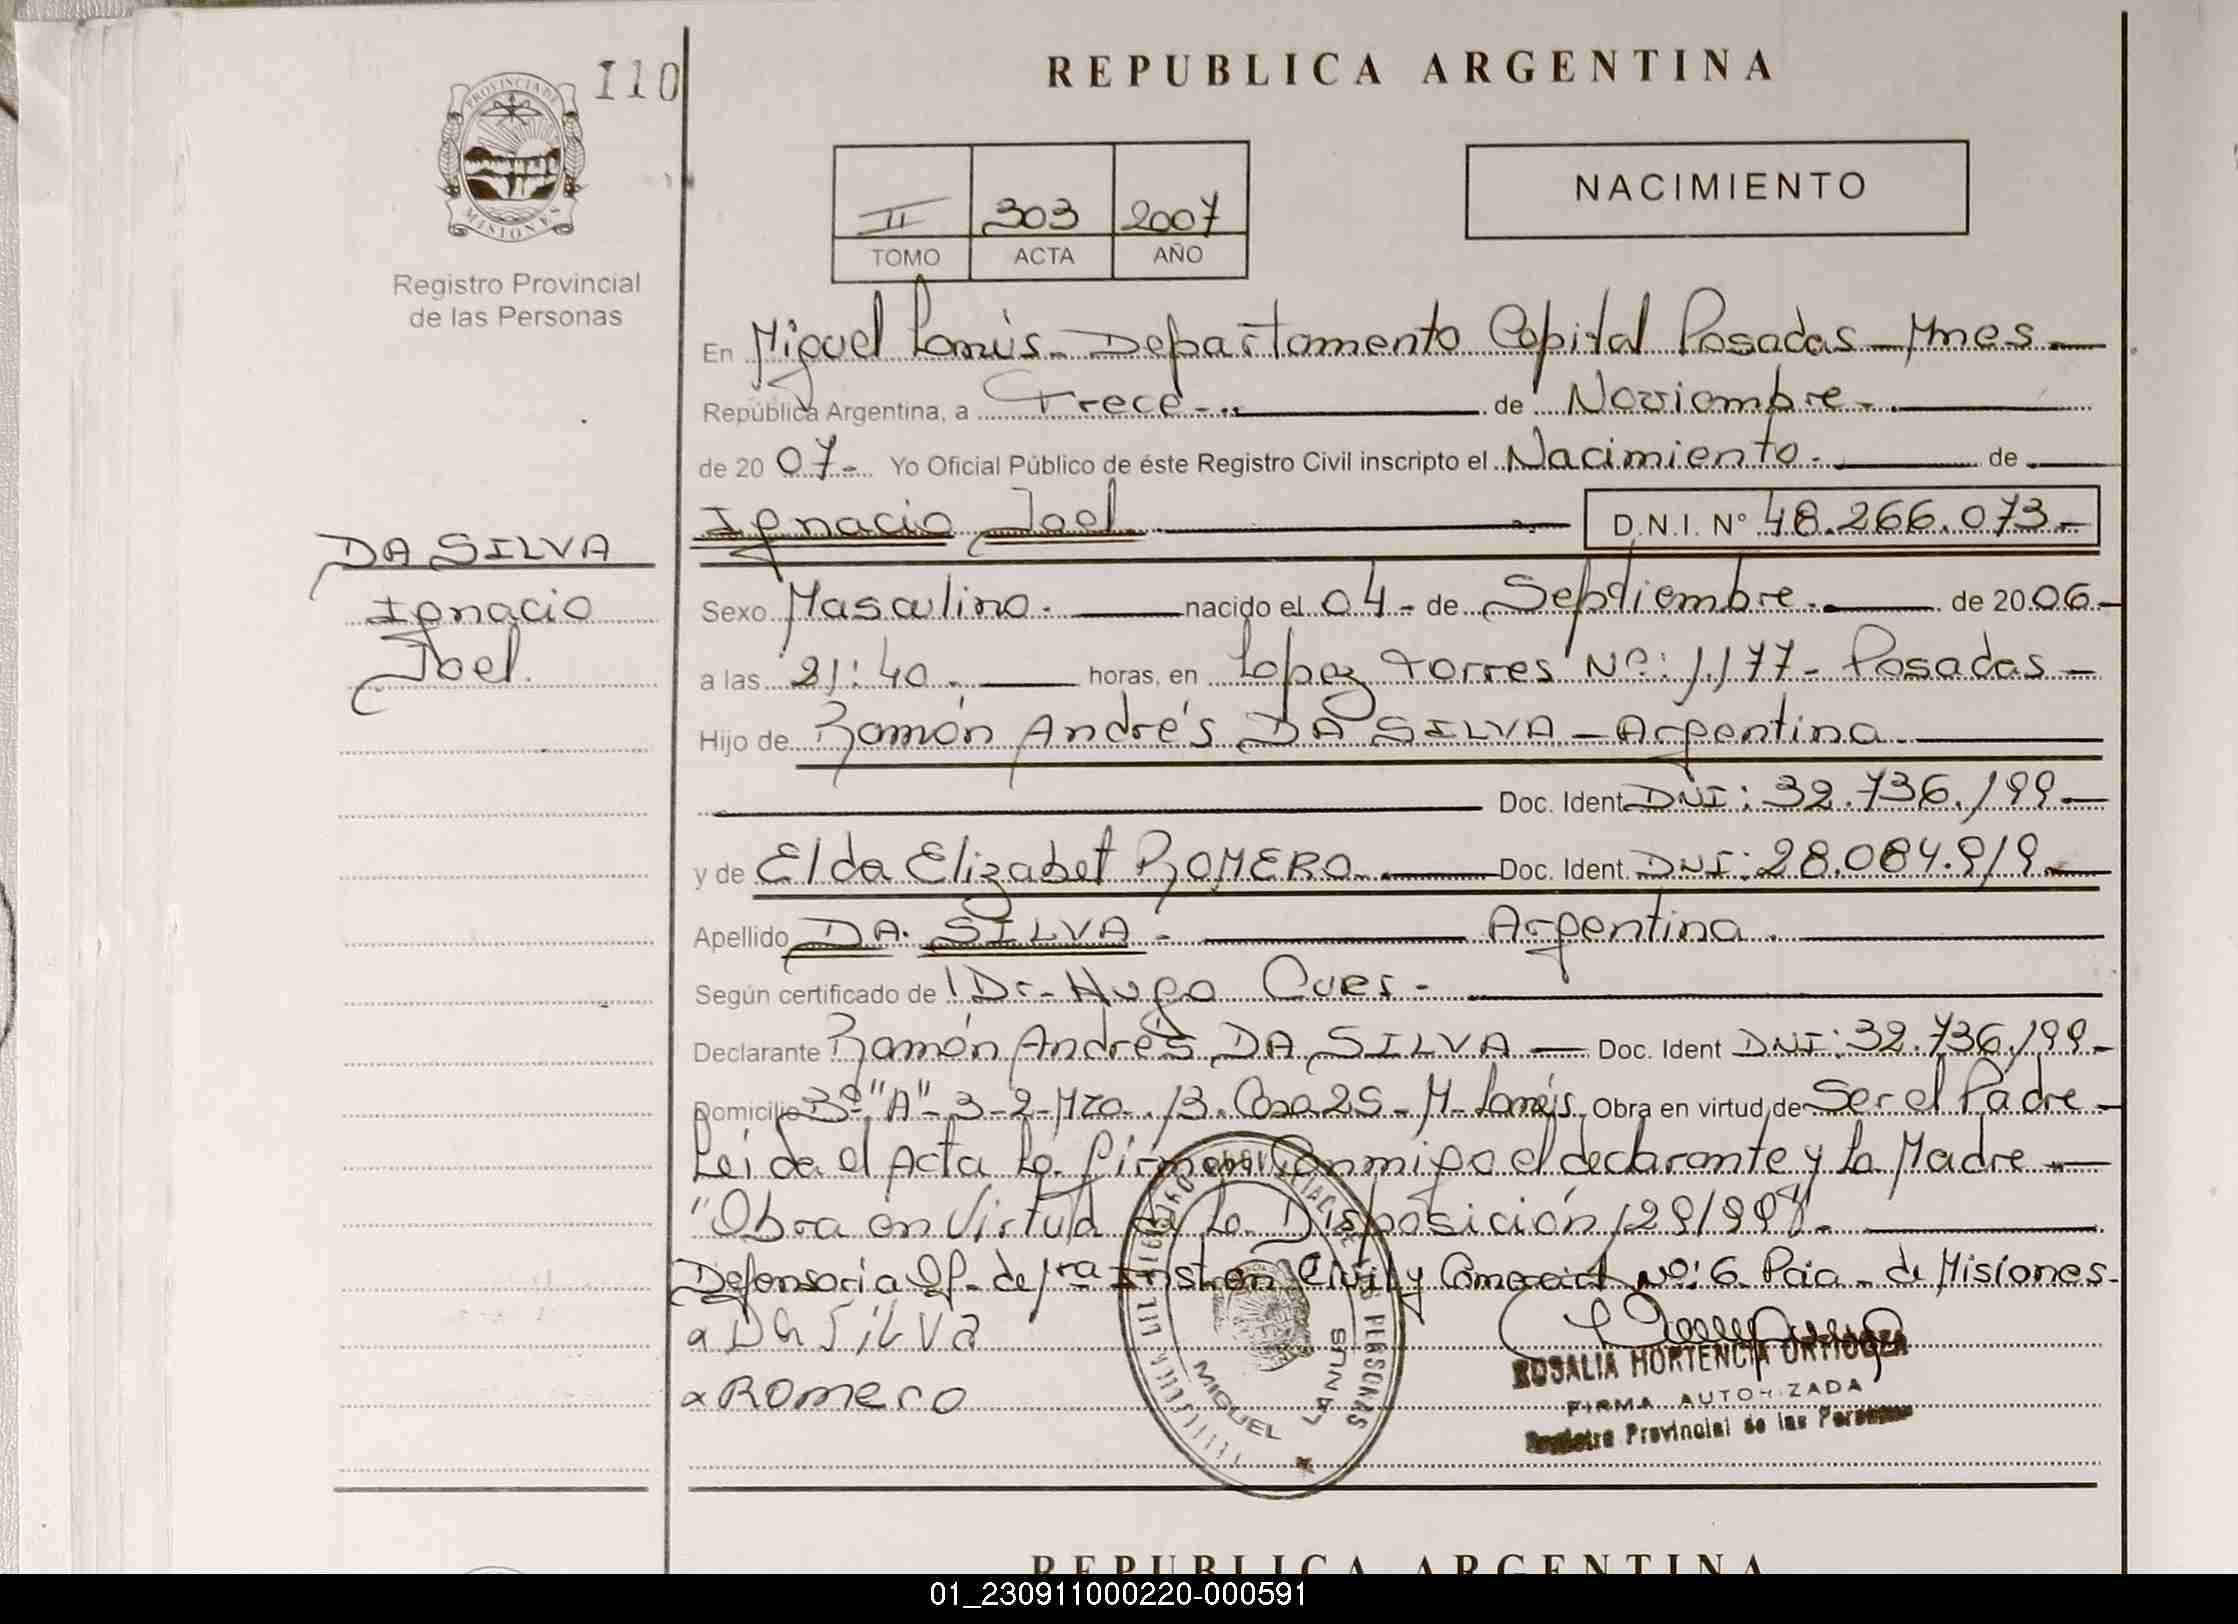 110
PROVINCIA DE
MISIONES
Registro Provincial
de las Personas
DA SILVA
Ignacio
Joel.
REPUBLICA ARGENTINA
II 303 2007
TOMO ACTA AÑO
NACIMIENTO
En Miguel Lanús - Departamento Capital Posadas - Mnes -
República Argentina, a Trece - de Noviembre -
de 20 07 - Yo Oficial Público de éste Registro Civil inscripto el Nacimiento - de
Ignacio Joel. D.N.I. Nº 48.266.073 -
Sexo Masculino - nacido el 04 - de Septiembre - de 20 06 -
a las 21:40 - horas, en Lopez Torres Nº: 1177 - Posadas -
Hijo de Ramón Andrés DA SILVA - Argentina
Doc. Ident DNI: 32.736.199 -
y de Elda Elizabet ROMERO - Doc. Ident. DNI: 28.084.919 -
Apellido DA SILVA - Argentina
Según certificado de Dr. Hugo
Declarante Ramón Andrés DA SILVA - Doc. Ident DNI: 32.736.199 -
Domicilio 3º "A" - 3 - 2 - Mza. 13. Casa 25 - M. Lanús. Obra en virtud de Ser el Padre -
Leida el Acta la firman Conmigo el declarante y la Madre -
"Obra en Virtud a la Disposición 129/99
Defensoria Of. de 1ra Inst. en Civil y Comercial Nº: 6 Pcia - de Misiones -
a DA SilVa
a Romero
PERSONAS
MIGUEL LANUS
ROSALIA HORTENCIA ORTIGOZA
FIRMA AUTORIZADA
Registro Provincial de las Personas
REPUBLICA ARGENTINA
01_230911000220-000591